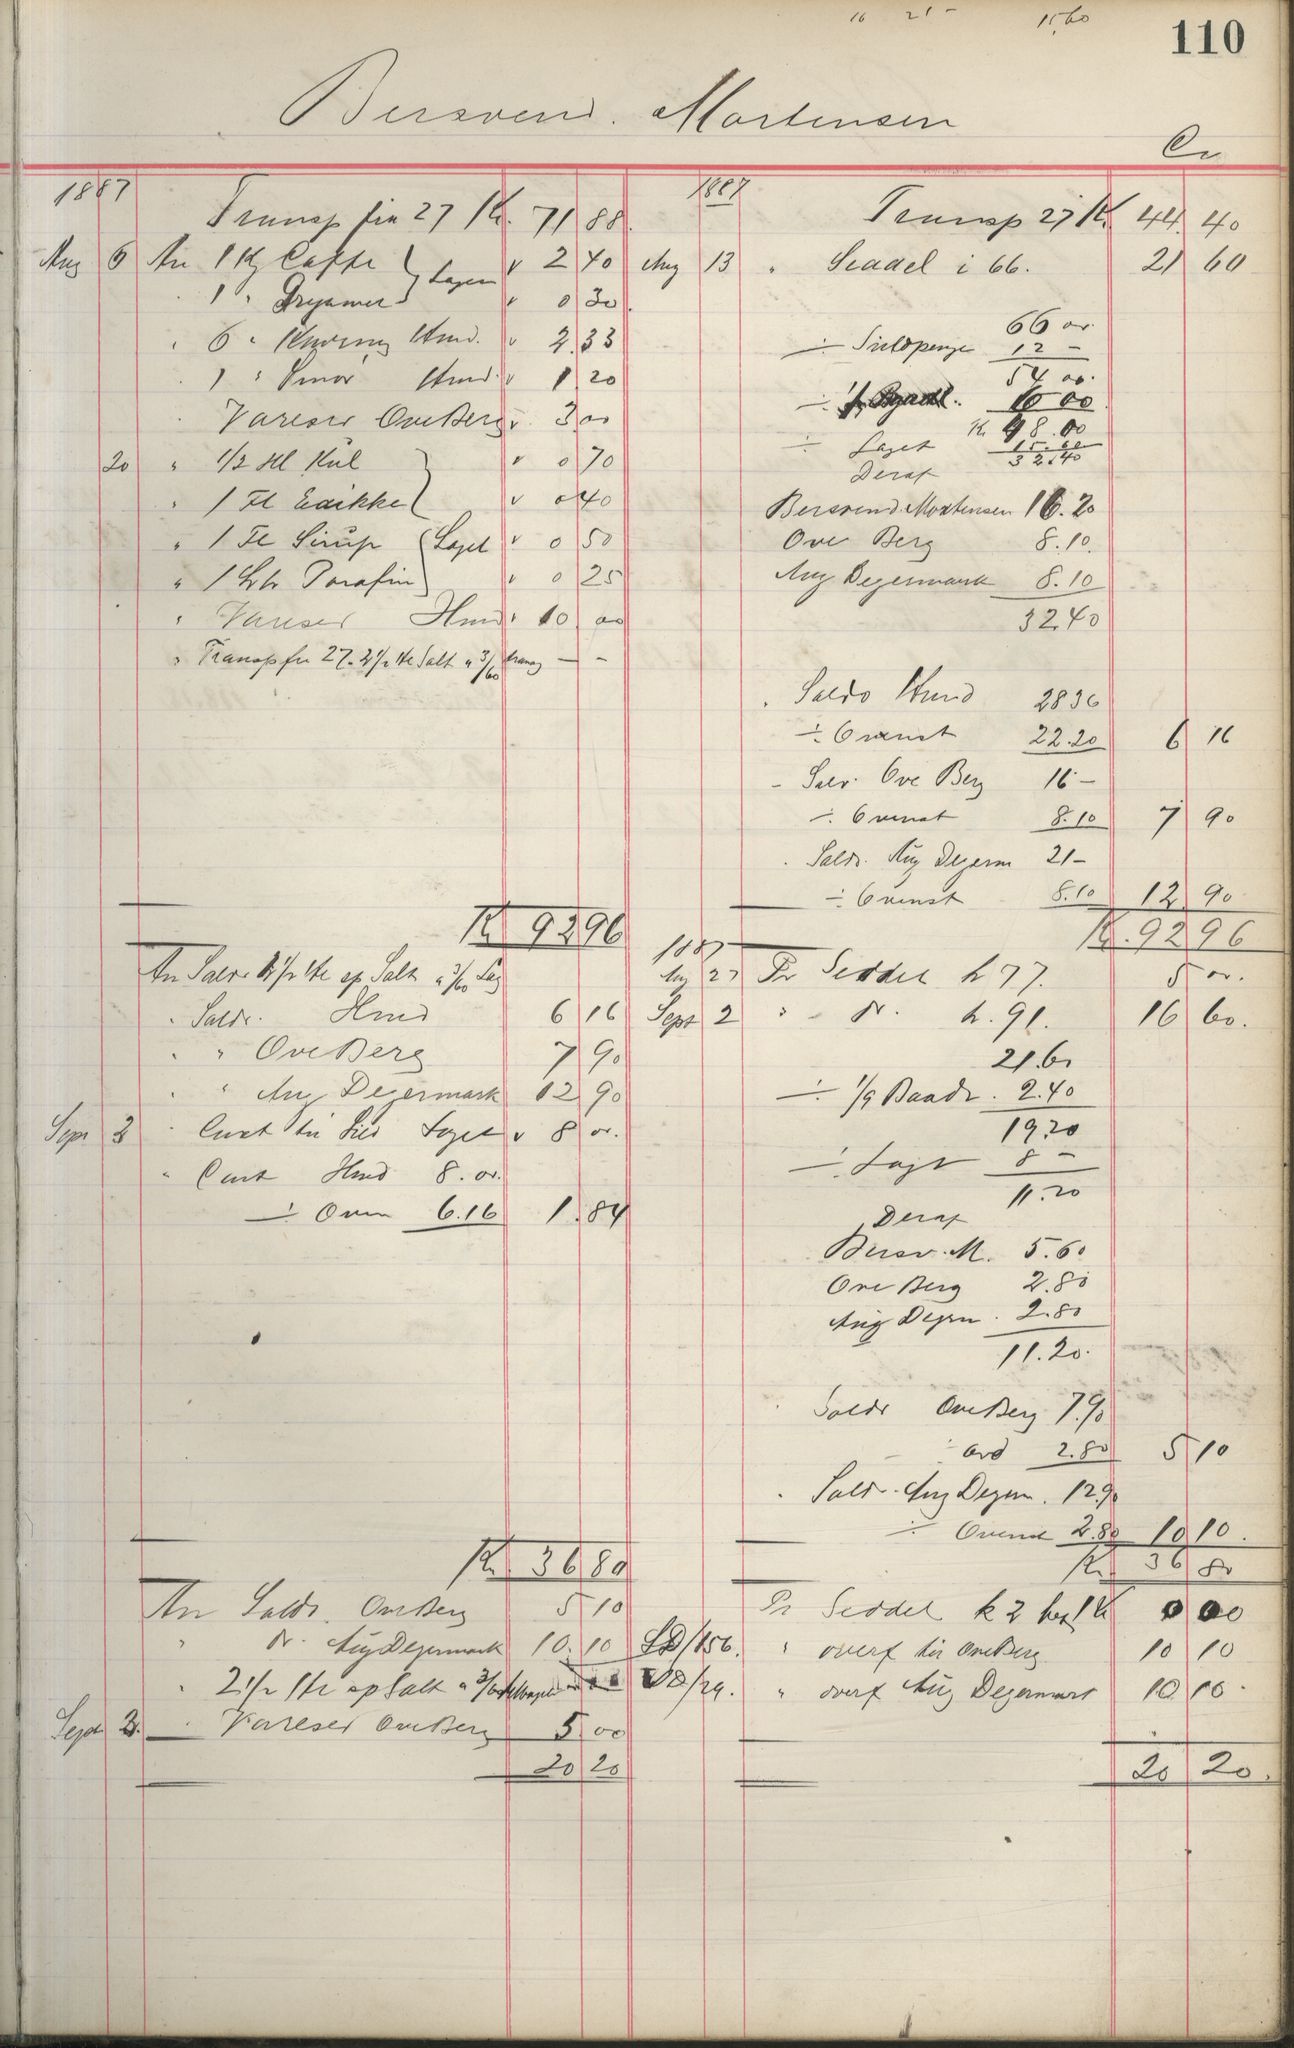 16 21 - 15,60
110
Bersvend. Mortensen
Cr
1887
Transp fra 27 Kr. 71 88
Aug 6 An 1 Kg Caffe v 2 40
Lagen
" 1 " Grynmel v 0 30
" 6 " Hmd. v 2.33
" 1 " Smør Hmd. v 1 20
" Vareser Ove Berg v. 3 00
20 " 1/2 Hl Kul v 0 70
" 1 Fl Edikke v 0 40
" 1 Fl Sirup Laget v 0 50
" 1 Ltr Parafin v 0 25
" Vareser Hmd v 10 00
" Transp fra 27. 2 1/2 Hl Salt a 3/60 — -
Kr 92 96
An Saldo 2 1/2 Hl af Salt a 3/60 Lag
" Saldo. Hmd 6 16
" " Ove Berg 7 90
" " Aug Degermark 12 90
Sept 2 " Cont til Sild Laget v 8 00.
" Cont Hmd 8.00.
÷ Oven 6.16 1.84
Kr 36 80
An Saldo. Ove Berg 5 10
" Do. Aug Degermark 10.10
" 2 1/2 Hl af Salt a 3/60
Sept 3. Vareser Ove Berg 5 00
20 20
1887
Transp 27 Kr. 44. 40
Aug 13 " Seddel i 66. 21 60
66 00.
÷ 12 -
54 00.
÷ 6 00
Kr 48.00
÷ Laget 15.60
32.40
Deraf
Bersvend Mortensen 16.20
Ove Berg 8.10.
Aug Degermark 8.10
32.40
" Saldo Hmd 28 36
÷ Ovenst 22.20 6 16
- Saldo. Ove Berg 16 -
÷ Ovenst 8.10 7 90
" Saldo. Aug Degerm 21 -
÷ Ovenst 8.10 12 90
Kr. 92 96
1887
Aug 27 Pr Seddel h 77. 5 00.
Sept 2 " - Do. h. 91. 16 60.
21.60
÷ 1/9 Baadl. 2.40
19.20
÷ Laget 8 -
11.20
Deraf
Bersv. M. 5.60
Ove Berg 2.80
Aug Degerm. 2.80
11.20.
" Saldo Ove Berg 7.90
÷ 2.80 5 10
" Saldo. Aug Degerm. 12.90
÷ Ovenst 2.80 10 10.
Kr 36 80
Pr Seddel k 2
LD/156. " overf til Ove Berg 10 10
LD/29. " overf Aug Degermark 10 10.
20 20.